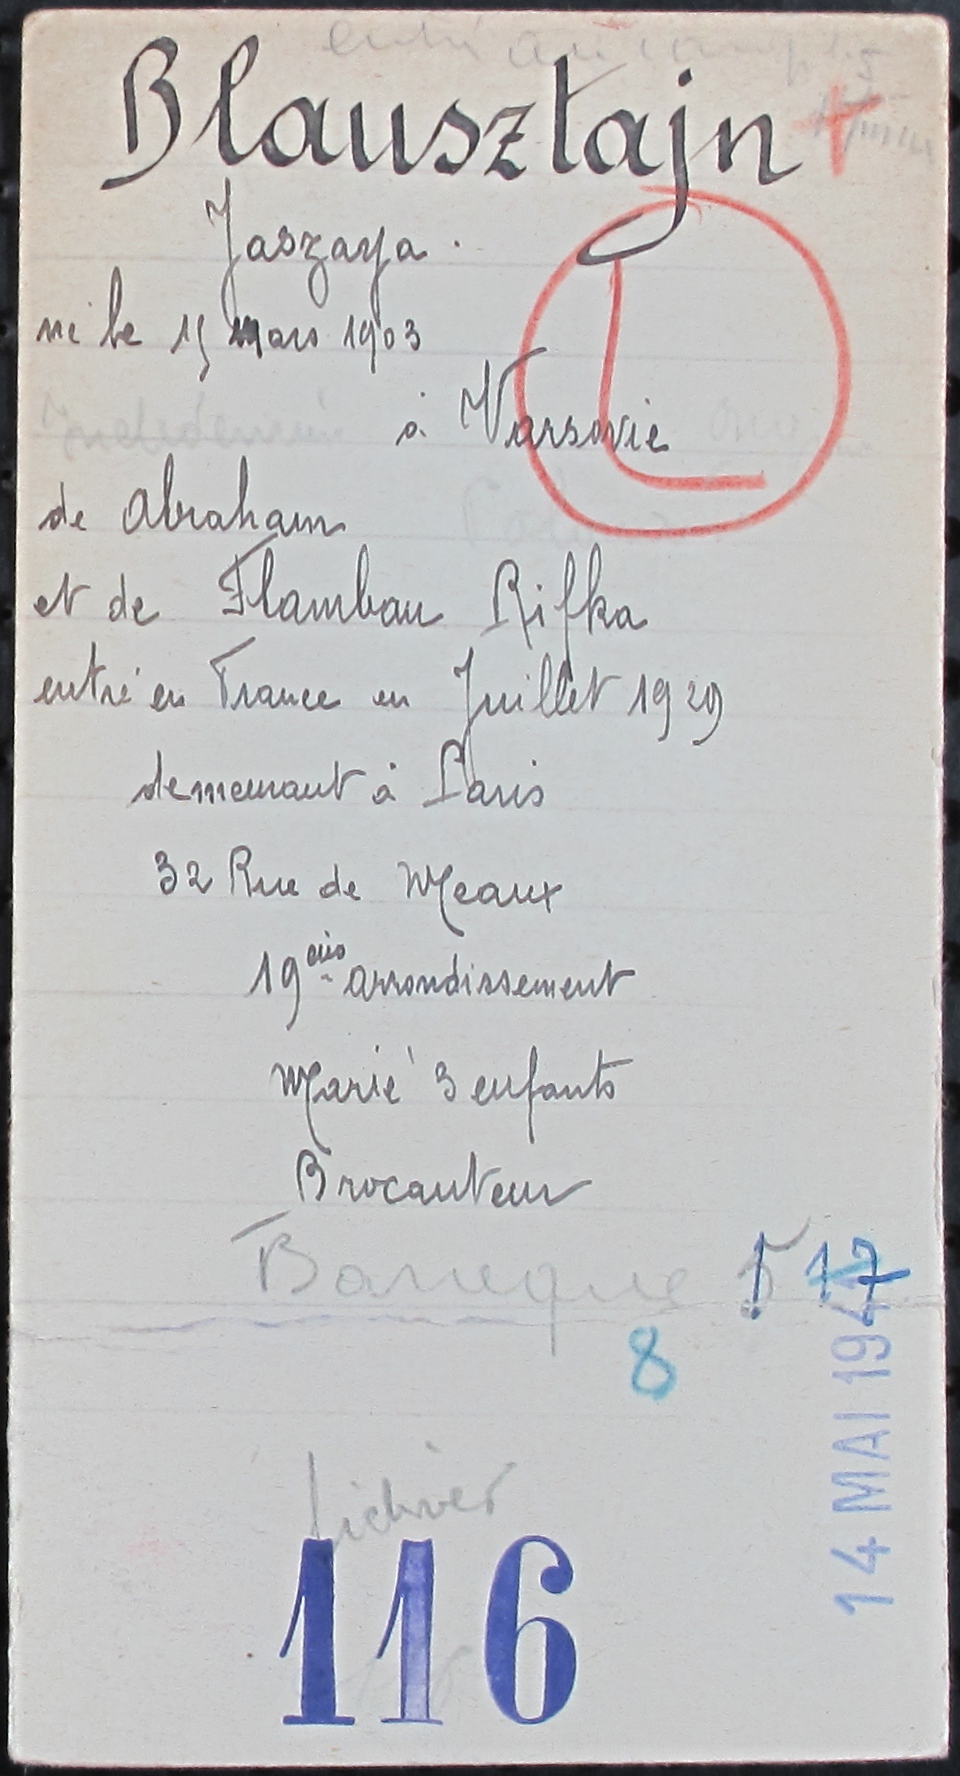 entré au camp
Blausztajn +
Jaszaya.
L
né le 15 mars 1903
à Varsovie
de Abraham
et de Flambau Rifka
entré en France en Juillet 1929
demeurant à Paris
32 Rue de Meaux
19 arrondissement
Marié 3 enfants
Brocanteur
Barreque 5 17
8
14 MAI 1941
fichier
116